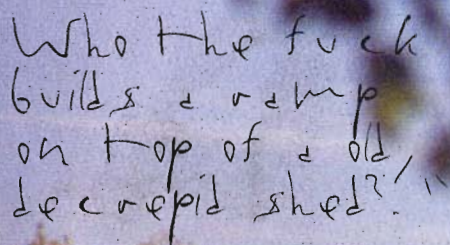 Who the fuck
builds a ramp
on top of a old,
decrepid shed?!"